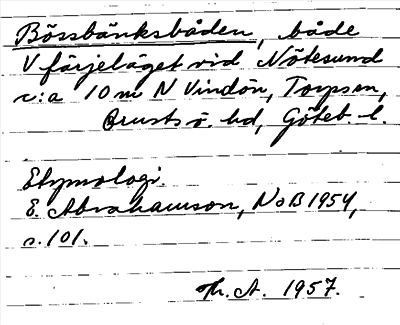 Bössbänksbåden, både
V färjeläget vid Nötesund
c:a 10 m N Vindön, Torpsn,
Orusts ö. hd, Göteb. l.
Etymologi.
E. Abrahamson, NoB 1954,
s. 101.
Th. A. 1957.